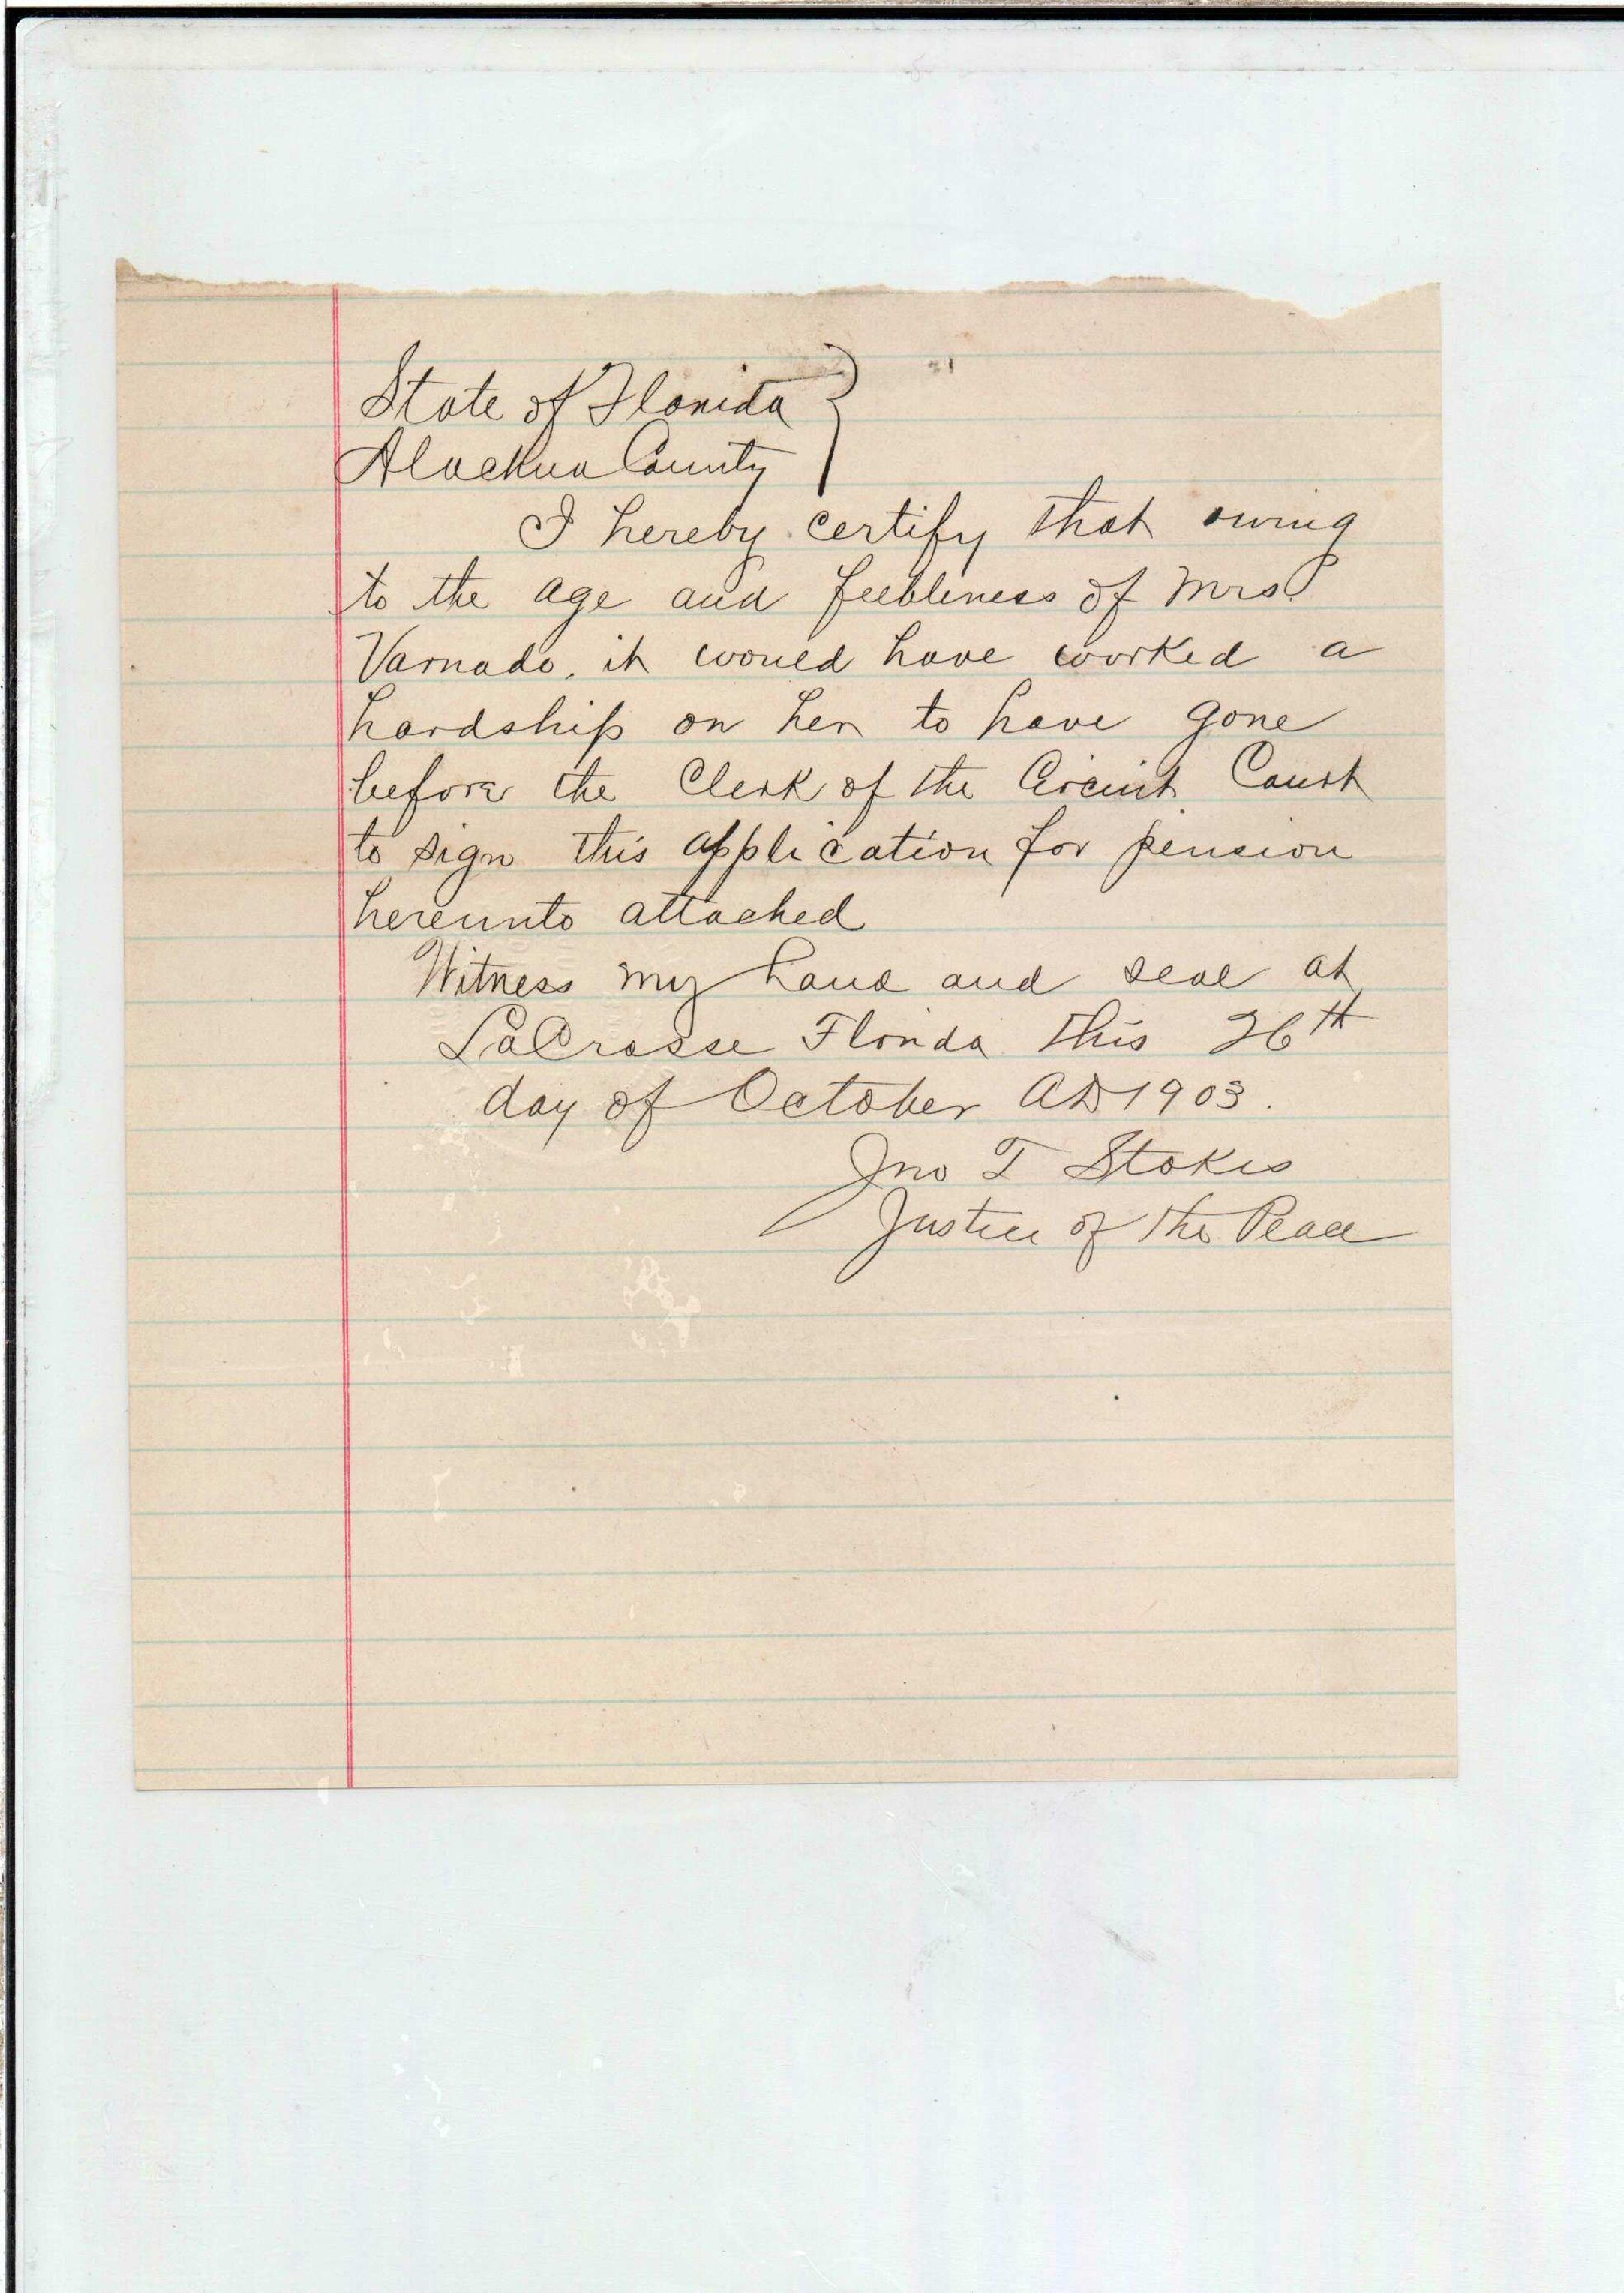 State of Florida }
Alachua County
I hereby certify that owing
to the age and feebleness of Mrs.
Varnado, it would have worked a
hardship on her to have gone
before the Clerk of the Circuit Court
to sign this application for pension
hereunto attached
Witness my hand and seal at
LaCrosse Florida this 26th
day of October AD 1903.
Jno T Stokes
Justice of the Peace